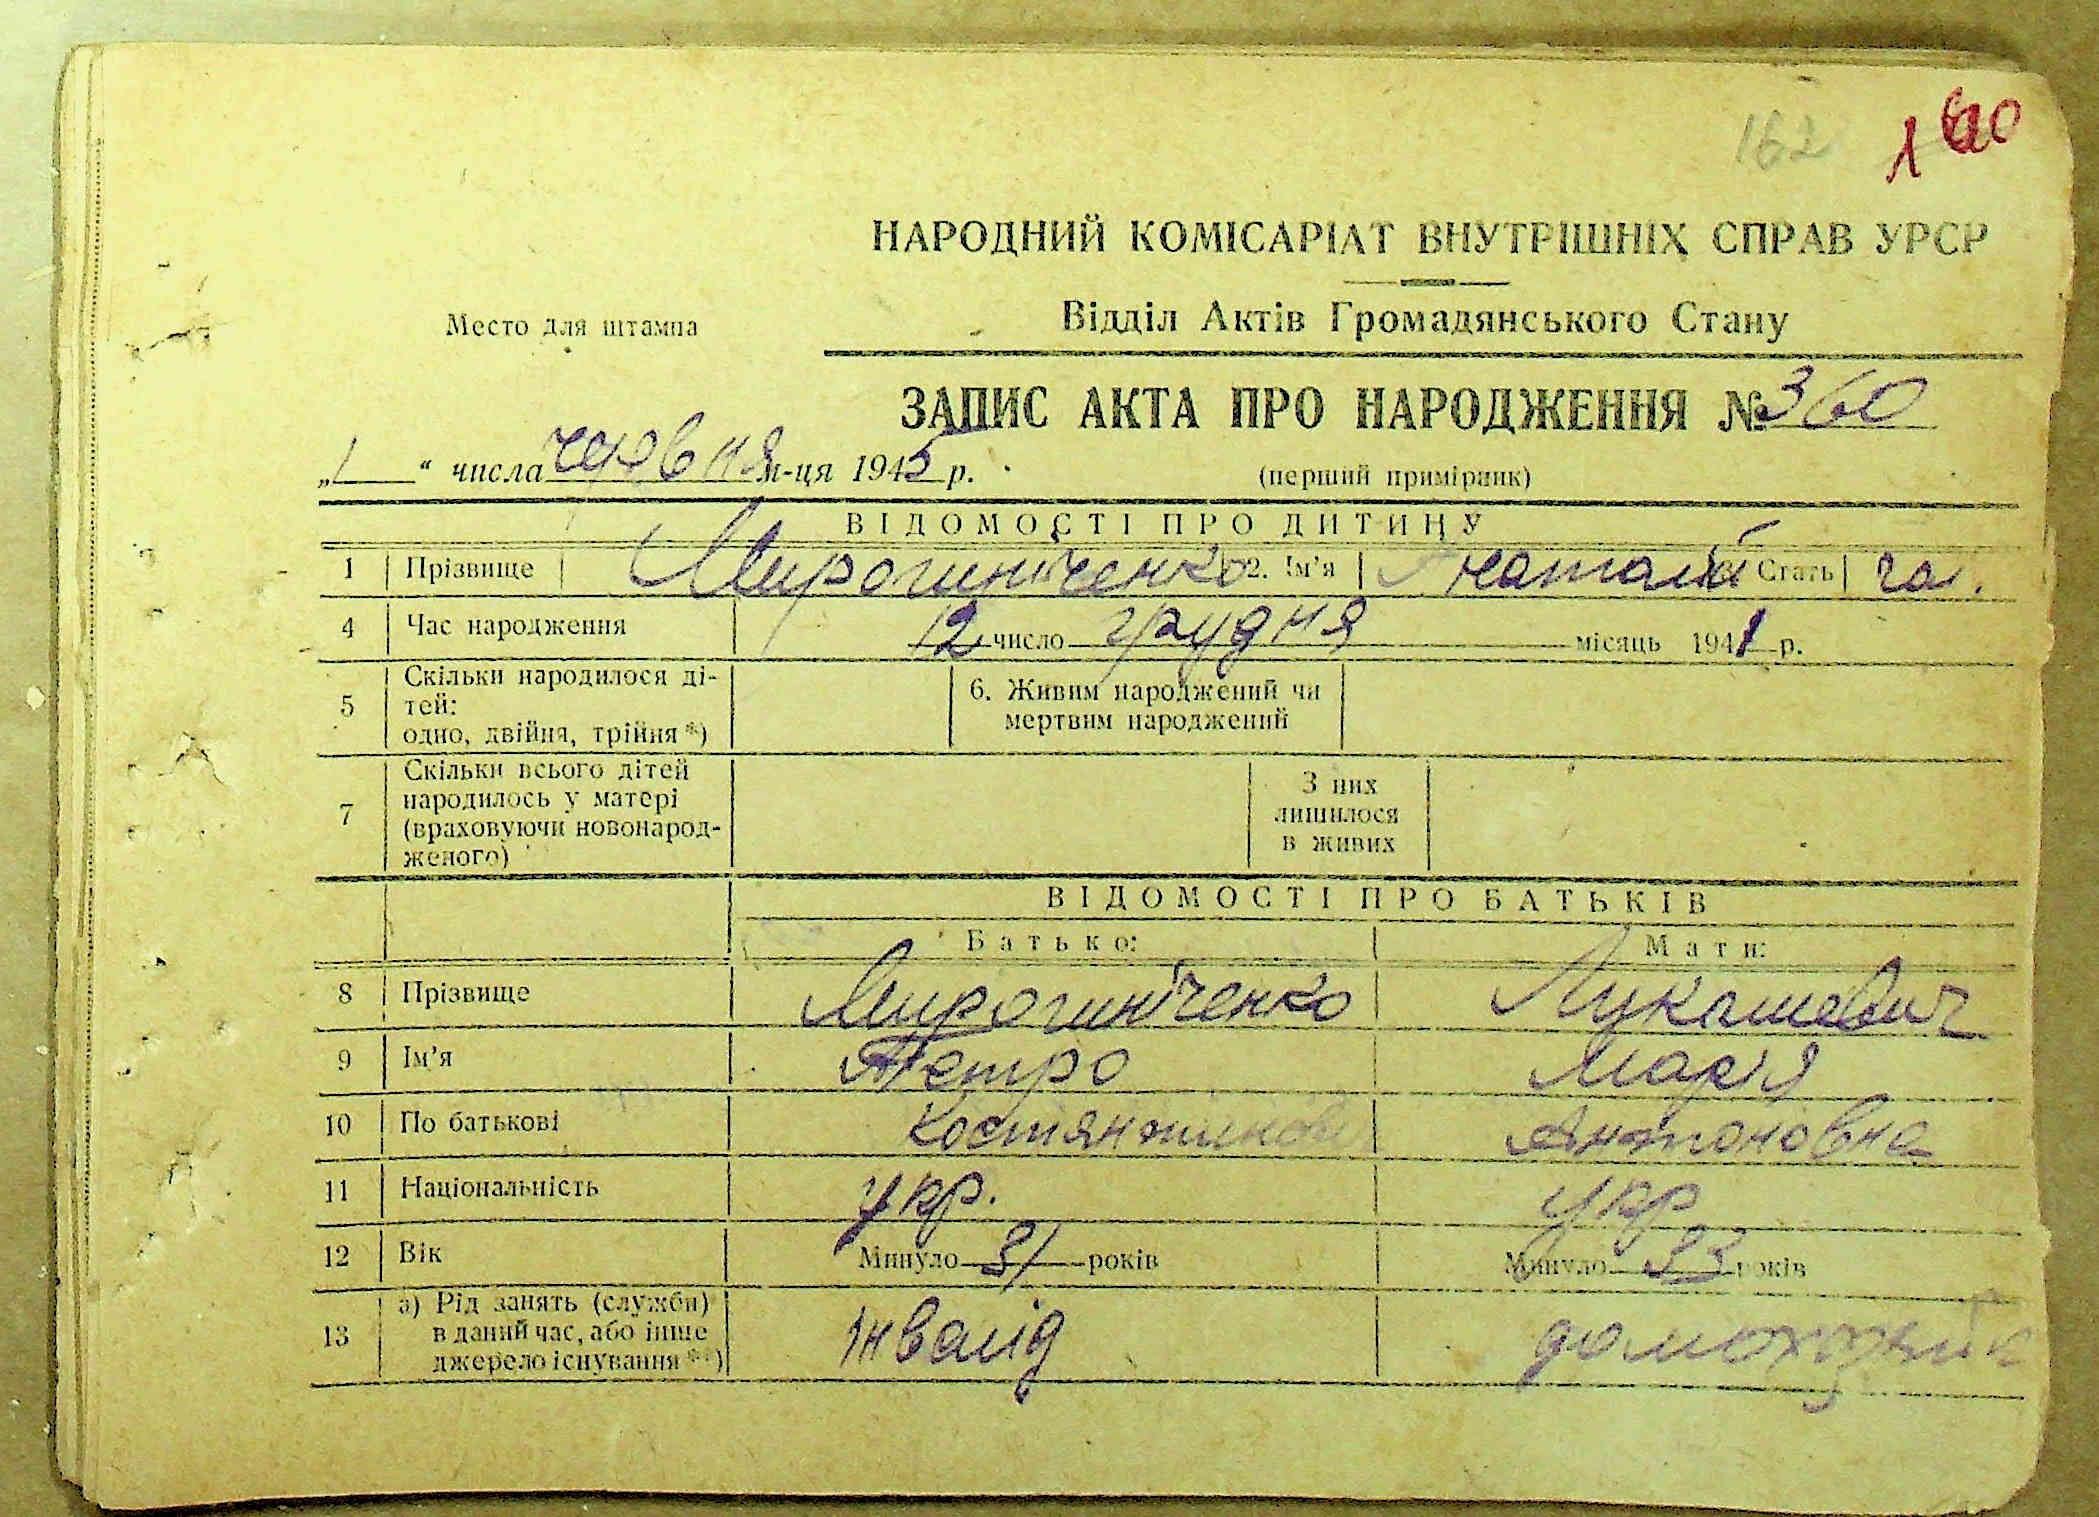 162 160
НАРОДНИЙ КОМІСАРІАТ ВНУТРІШНІХ СПРАВ УРСР
Место для штампа
Відділ Актів Громадянського Стану
ЗАПИС АКТА ПРО НАРОДЖЕННЯ № 360
„1“ числа червня м-ця 1945 р. (перший примірник)
ВІДОМОСТІ ПРО ДИТИНУ
1 Прізвище Мирошниченко 2. Ім'я Анатолій Стать чол.
4 Час народження 12 число грудня місяць 1941 р.
5 Скільки народилося ді-
тей:
одно, двійня, трійня *)
6. Живим народжений чи
мертвим народжений
7 Скільки всього дітей
народилось у матері
(враховуючи новонарод-
женого)
З них
лишилося
в живих
ВІДОМОСТІ ПРО БАТЬКІВ
Батько: Мати:
8 Прізвище Мирошниченко Лукашевич
9 Ім'я Петро Марія
10 По батькові Костянтинови Антоновна
11 Національність укр. укр
12 Вік Минуло 31 років Минуло 33 років
13 а) Рід занять (служби)
в даний час, або інше
джерело існування **)
Інвалід